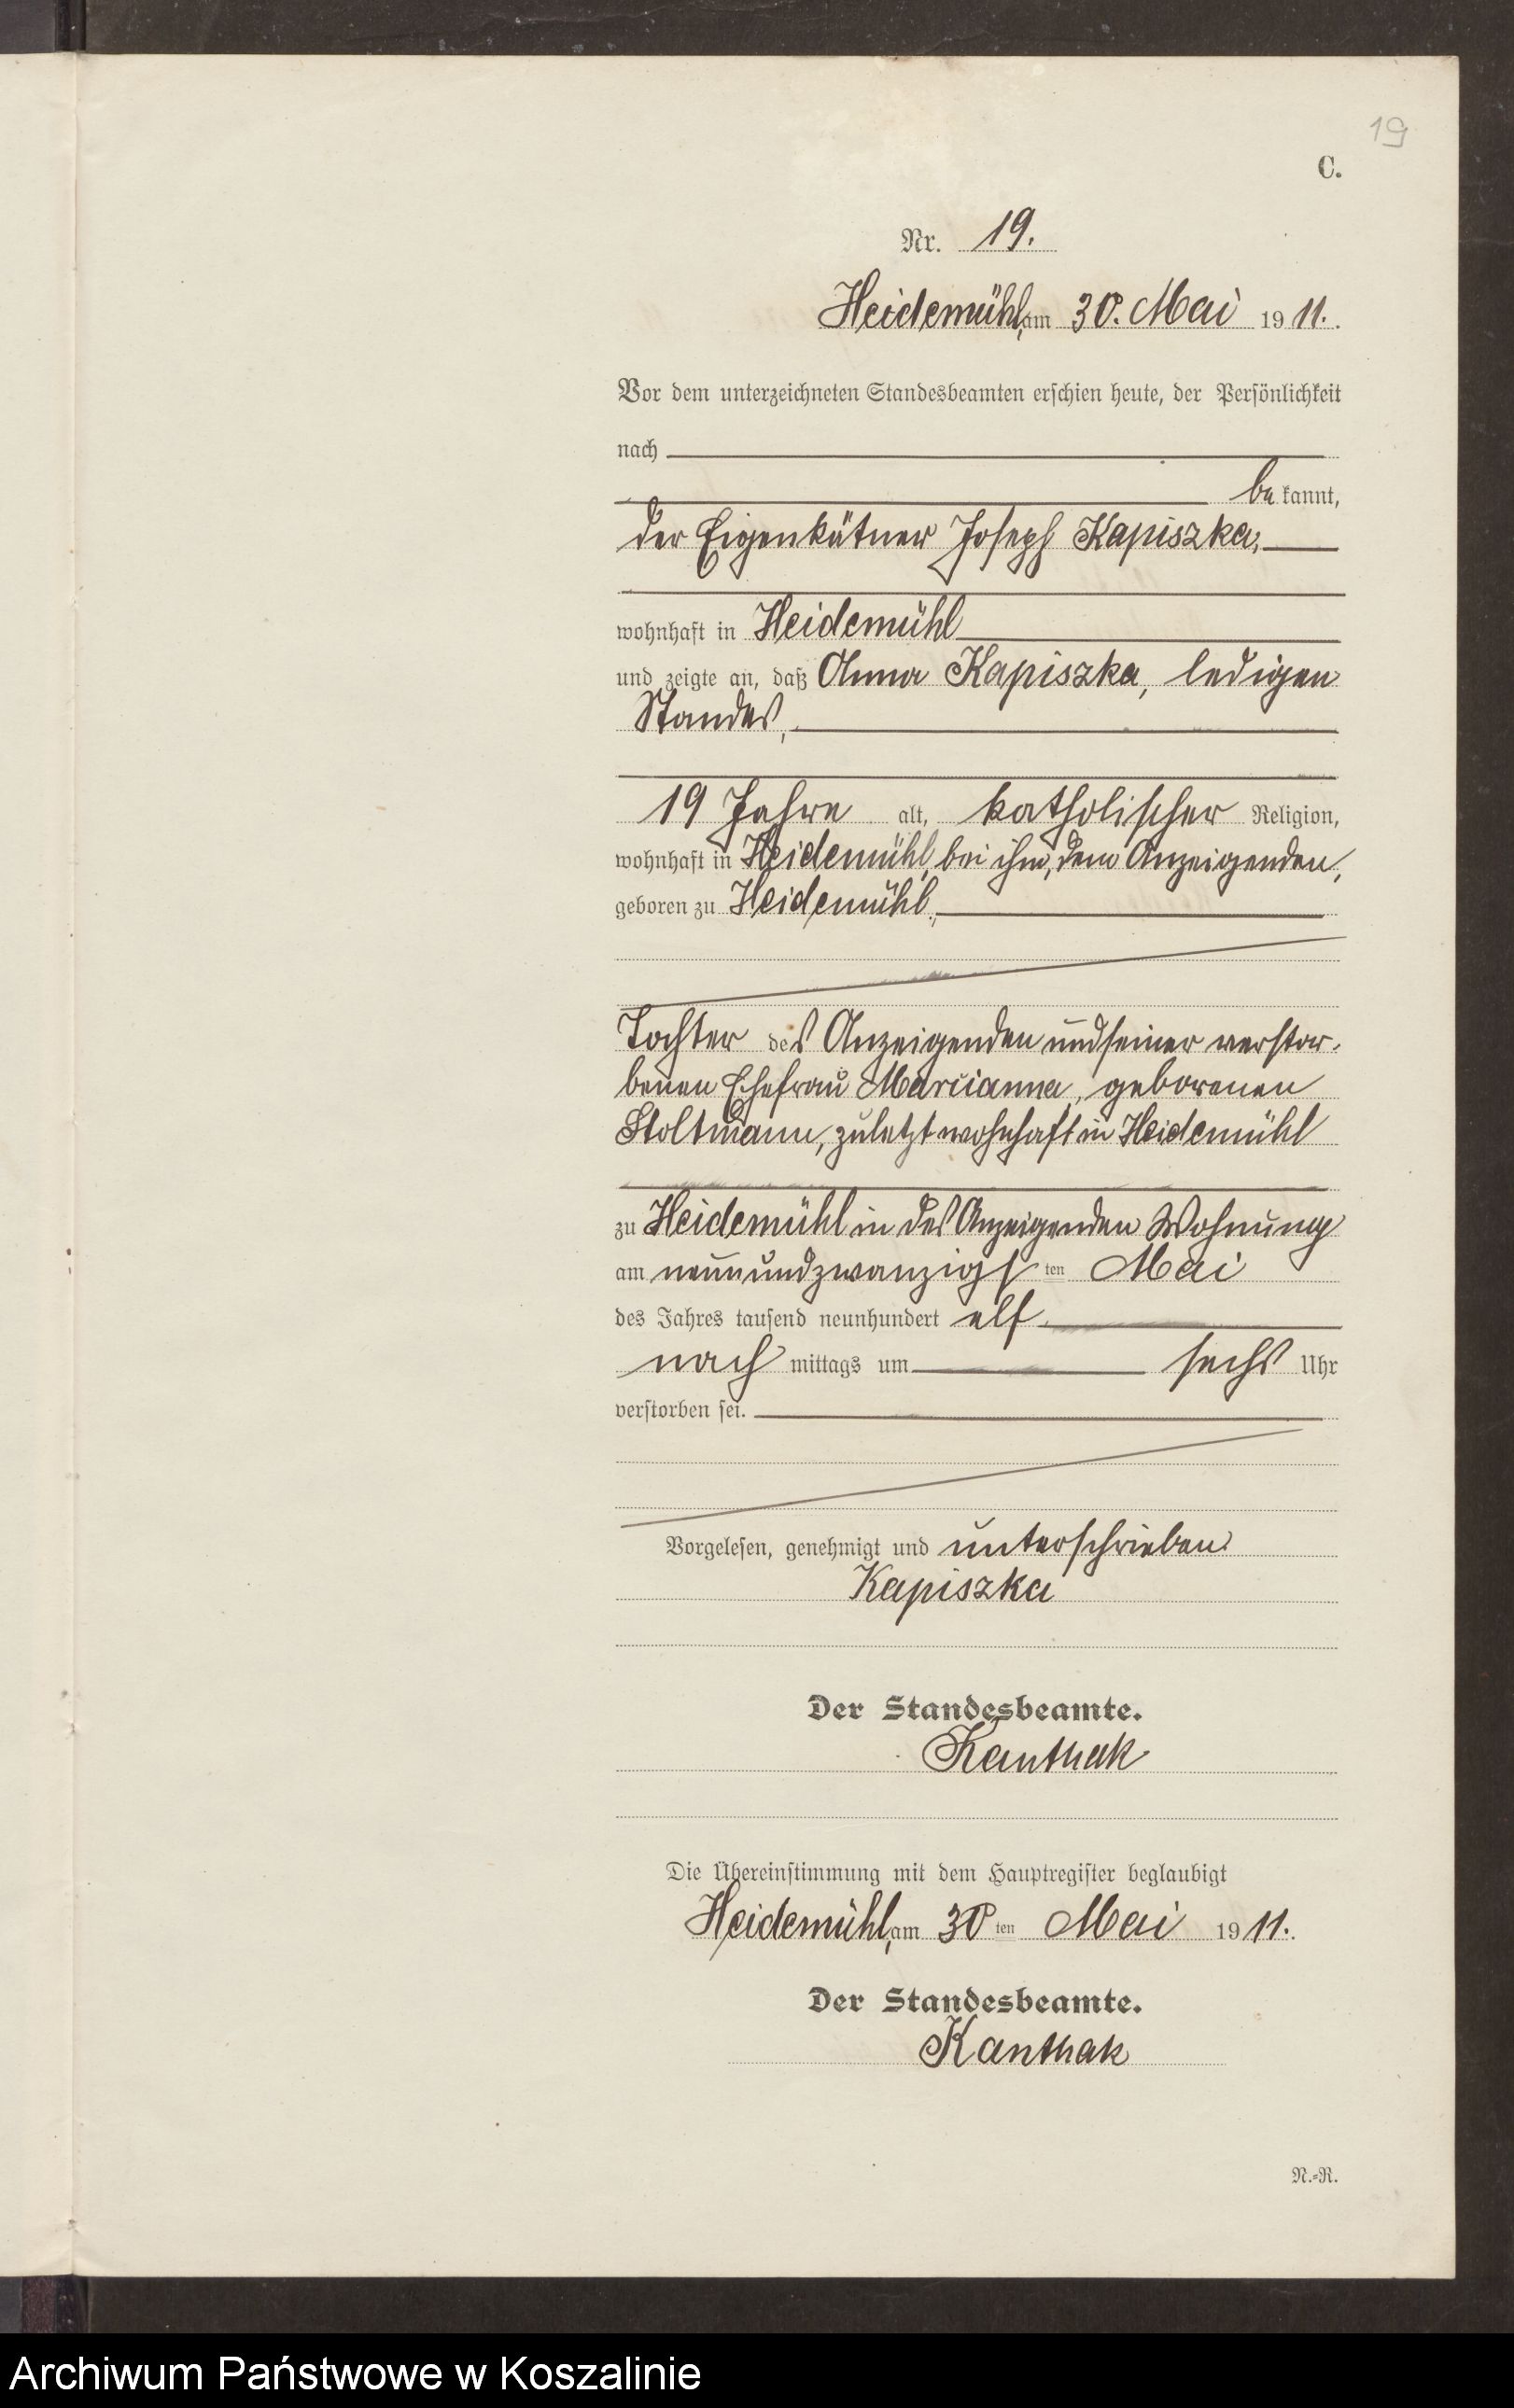 19
C.
Nr. 19.
Heidemühl, am 30. Mai 1911.
Vor dem unterzeichneten Standesbeamten erschien heute, der Persönlichkeit
nach
bekannt,
der Eigenkätner Joseph Kapiszka,
wohnhaft in Heidemühl
und zeigte an, daß Anna Kapiszka, ledigen
Standes,
19 Jahre alt, katholischer Religion,
wohnhaft in Heidemühl, bei ihm, dem Anzeigenden,
geboren zu Heidemühl,
Tochter des Anzeigenden und seiner verstor-
benen Ehefrau Marianna, geborenen
Stoltmann, zuletzt wohnhaft in Heidemühl
zu Heidemühl in des Anzeigenden Wohnung
am neunundzwanzigsten Mai
des Jahres tausend neunhundert elf
nachmittags um sechs Uhr
verstorben sei.
Vorgelesen, genehmigt und unterschrieben.
Kapiszka
Der Standesbeamte.
Kanthak
Die Übereinstimmung mit dem Hauptregister beglaubigt
Heidemühl, am 30ten Mai 1911.
Der Standesbeamte.
Kanthak
N.-R.
Archiwum Państwowe w Koszalinie